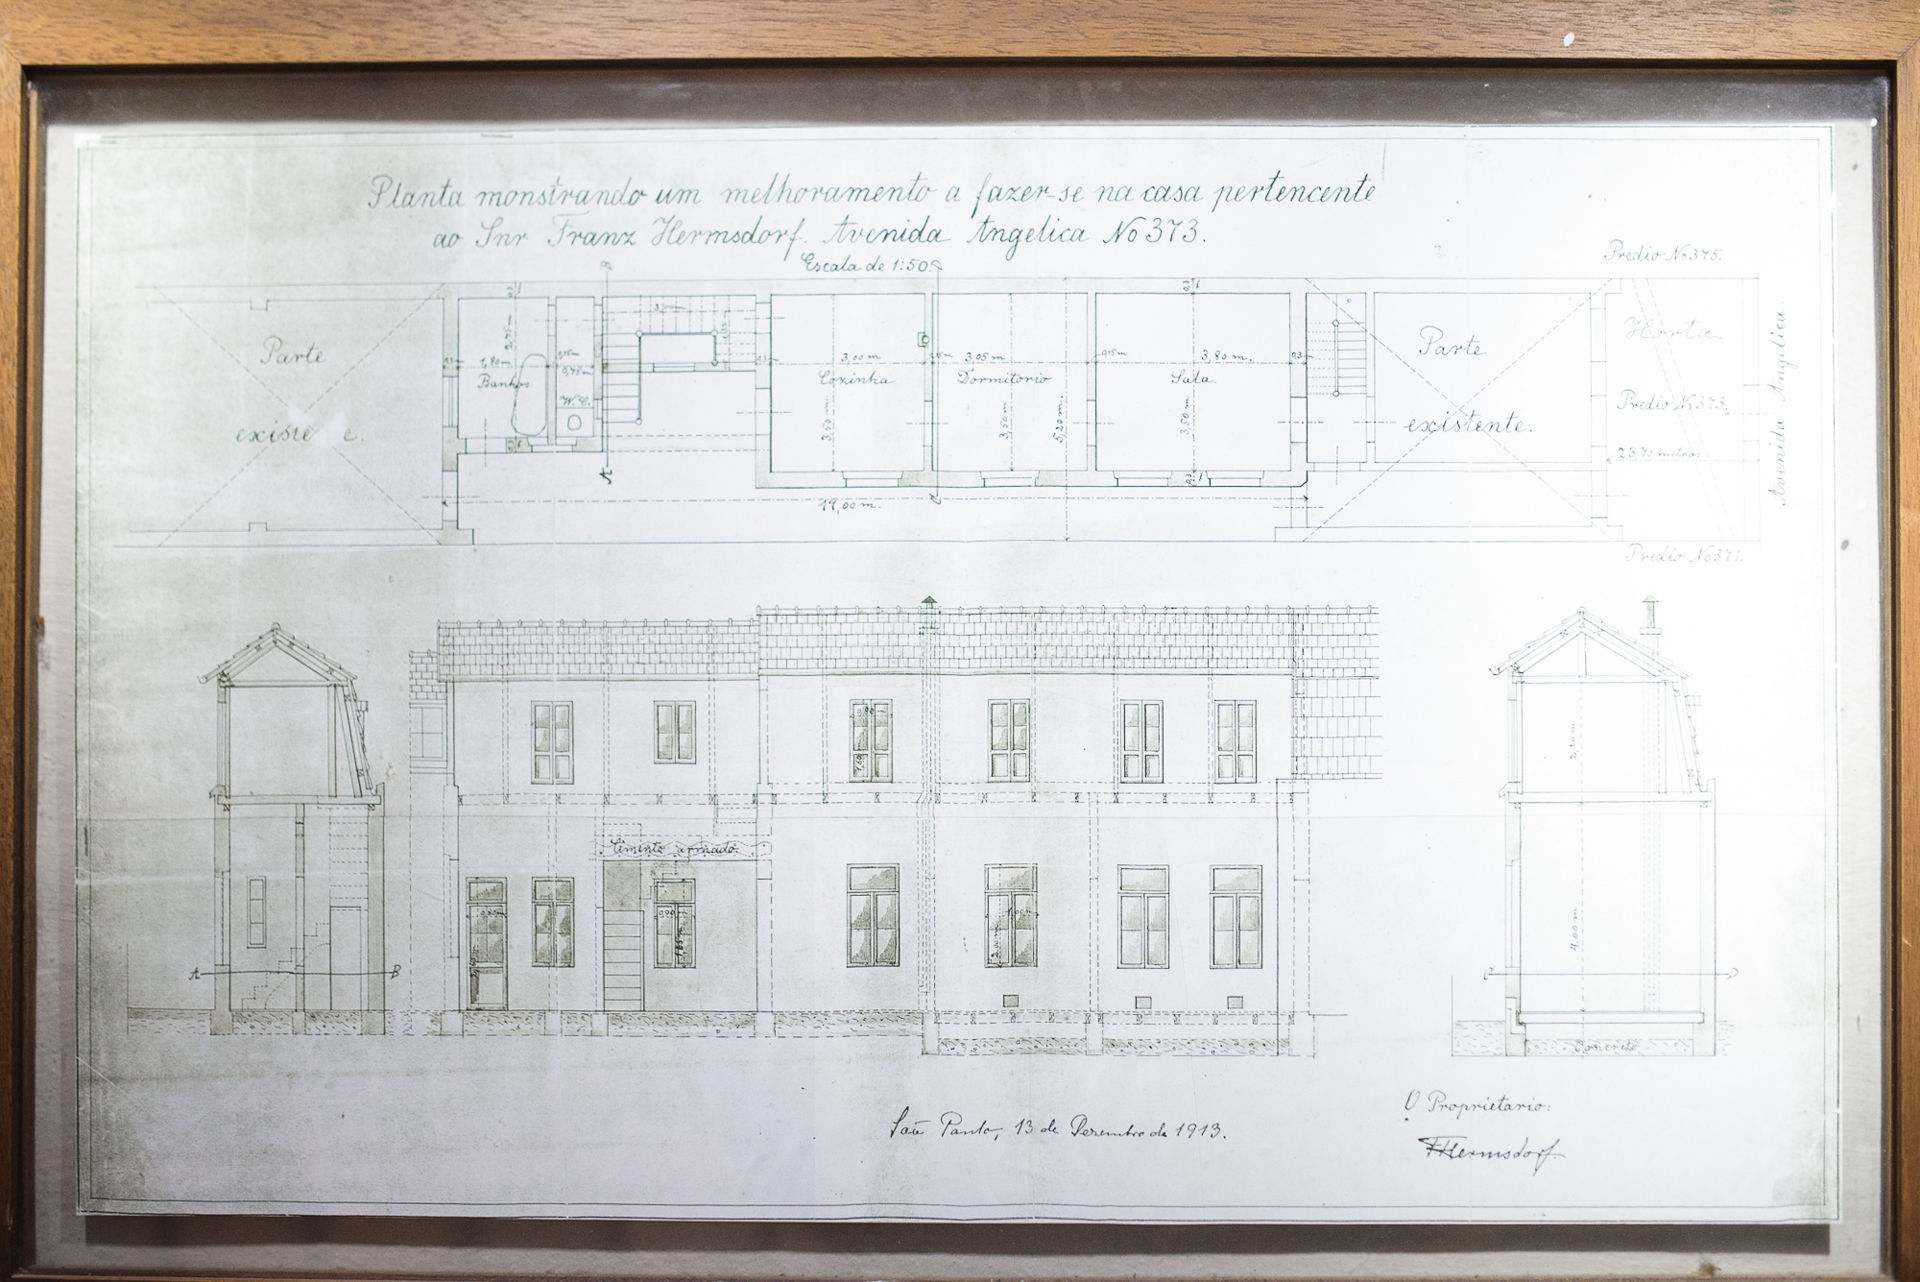 Planta monstrando um melhoramento a fazer-se na casa pertencente
ao Snr Franz Hermsdorf. Avenida Angelica No 373.
Escala de 1:50.
Predio No 375.
Parte
existe e.
2,75 m
1,80 m
Banhos
0,15 m
0,75 m
W.C.
3,00 m
Cozinha
3,50 m
3,05 m
Dormitorio
3,50 m
5,20 m.
0,15 m
3,80 m.
Sala.
3,50 m
0,3
Parte
existente.
Horta
Predio No 373.
23,70 metros
Avenida Angelica.
A
17,00 m.
Predio No 371.
Cimento armado.
0,90 m
2,00 m
4,00 m
A
B
C
D
Concreto
São Paulo, 13 de Dezembro de 1913.
O Proprietario:
FHermsdorf.